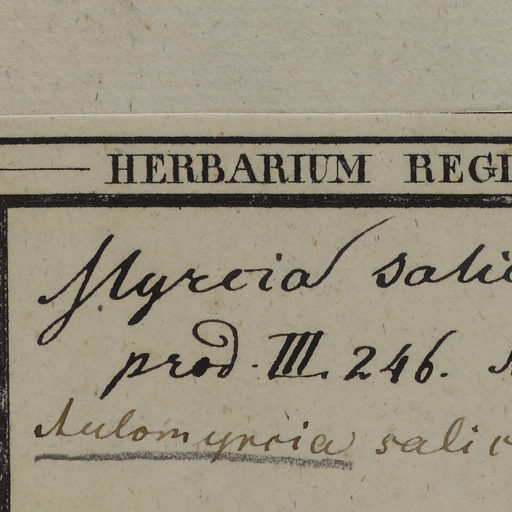 HERBARIUM REGI
Myrcia salic
prod. III. 246.
Aulomyrcia salic